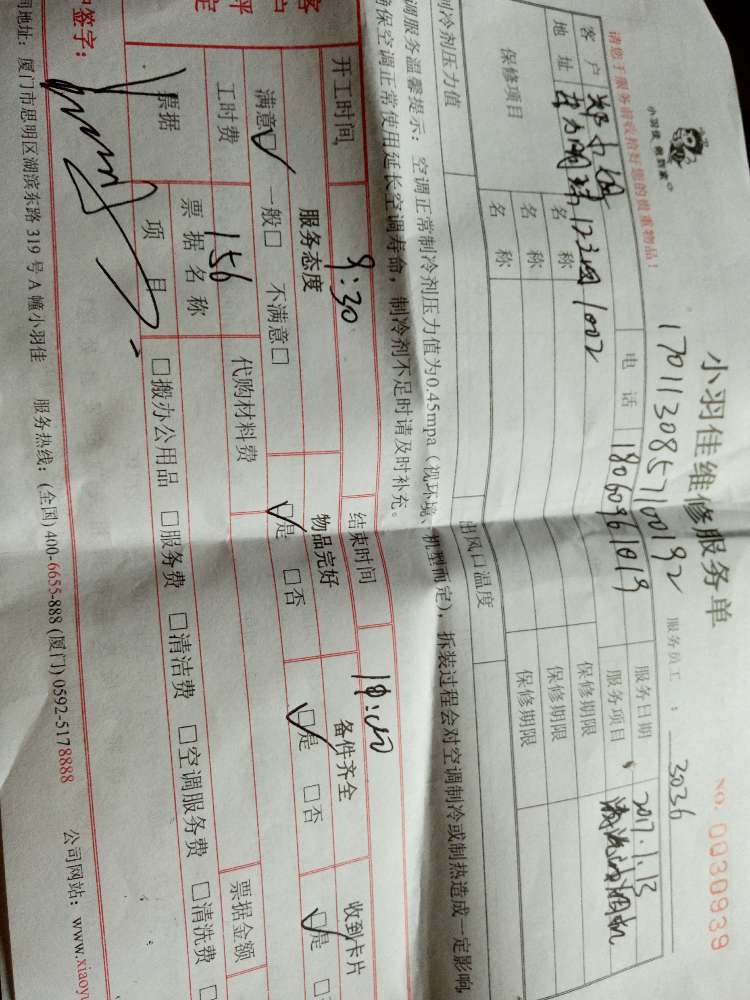 小羽佳维修服务单
小羽佳 做到家
NO. 0030939
17011308571 00192
服务员工：3036
请您于服务前收拾好您的贵重物品！
客户 电话 18060961019 服务日期 2017.1.13
地址 123 1002 服务项目
保修项目 名称 保修期限
名称 保修期限
名称 保修期限
制冷剂压力值 出风口温度
调服务温馨提示：空调正常制冷剂压力值为0.45mpa（视环境、机型而定），拆装过程会对空调制冷或制热造成一定影响，
确保空调正常使用延长空调寿命，制冷剂不足时请及时补充。
开工时间 9:30 结束时间
服务态度 物品完好 备件齐全 收到卡片
满意☑ 一般□ 不满意□ ☑是 □否 ☑是 □否 ☑是
工时费 156 代购材料费 票据金额
票据 票据名称
项目 □搬办公用品 □服务费 □清洁费 □空调服务费 □清洗费 □
签字：
司地址：厦门市思明区湖滨东路 319 号 A 幢小羽佳 服务热线：(全国) 400-6655-888 (厦门) 0592-5178888 公司网站：www.xiaoy